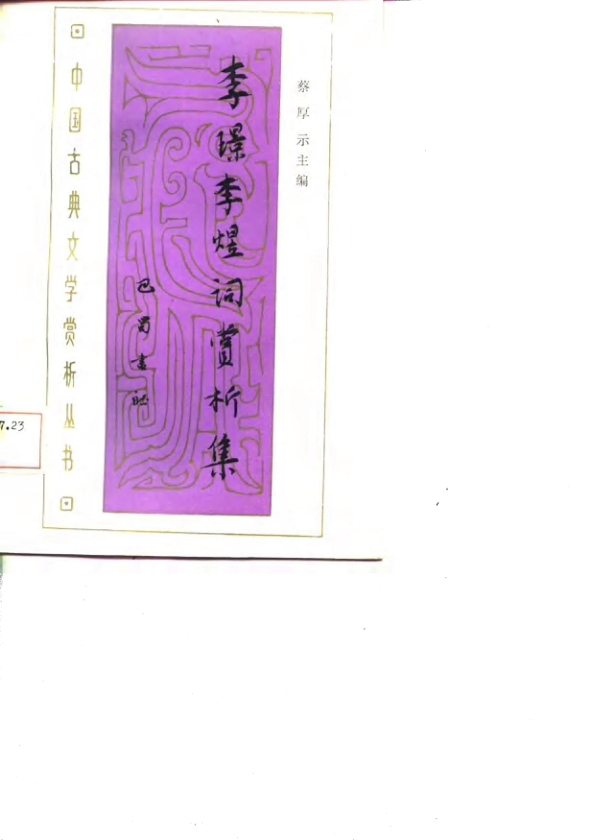 蔡厚示主编
李璟李煜词赏析集
巴蜀书社
中国古典文学赏析丛书
7.23